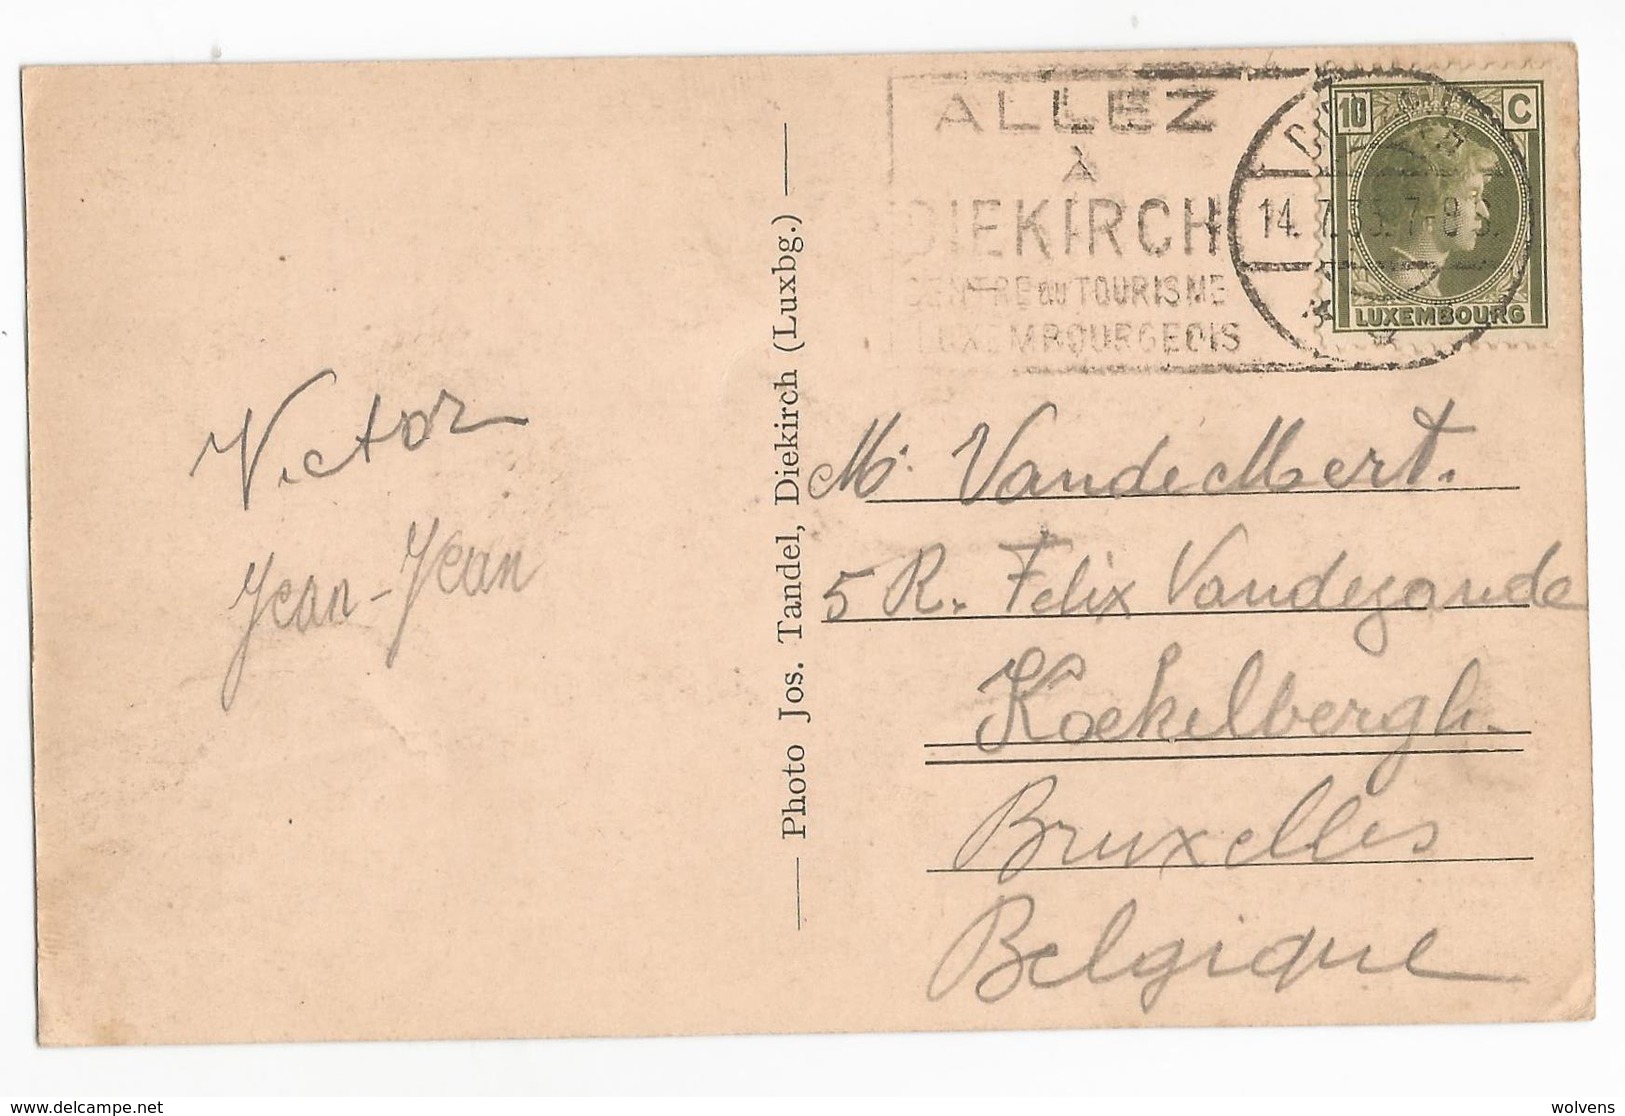 ALLEZ
à
DIEKIRCH
CENTRE du TOURISME
LUXEMBOURGEOIS
14. 7.
7-8
10 C
LUXEMBOURG
Victor
Jean-Jean
Photo Jos. Tandel, Diekirch (Luxbg.)
Mr. Vandemert.
5 R. Felix Vandezande
Koekelbergh.
Bruxelles
Belgique
www.delcampe.net
wolvens